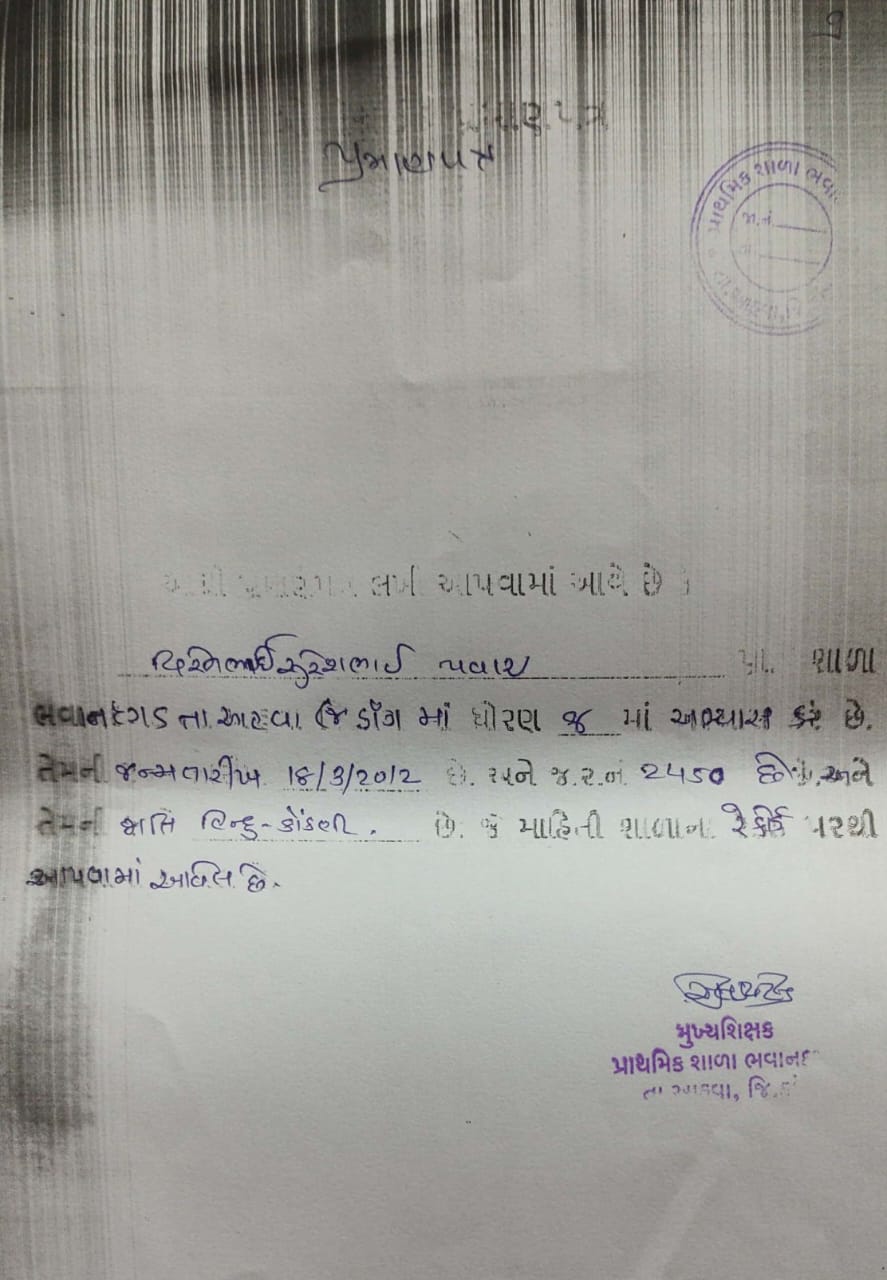 પ્રમાણપત્ર
પ્રાથમિક શાળા ભવાન
જા.નં.
તા.
લખી આપવામાં આવે છે કે
સુરેશભાઈ પવાર પ્રા. શાળા
ભવાનદગડ તા આહવા જિ ડાઁગ માં ધોરણ જ માં અભ્યાસ કરે છે.
તેમની જન્મ તારીખ ૧૪/૩/૨૦૧૨ છે. અને જ.ર.નં ૨૫૫૦ છે. અને
તેમની જાતિ હિન્દુ-કોંકણી. છે. જે માહિતી શાળાના રેકર્ડ પરથી
આપવામાં આવેલ છે.
મુખ્યશિક્ષક
પ્રાથમિક શાળા ભવાનદ
તા આહવા, જિ.ડાં